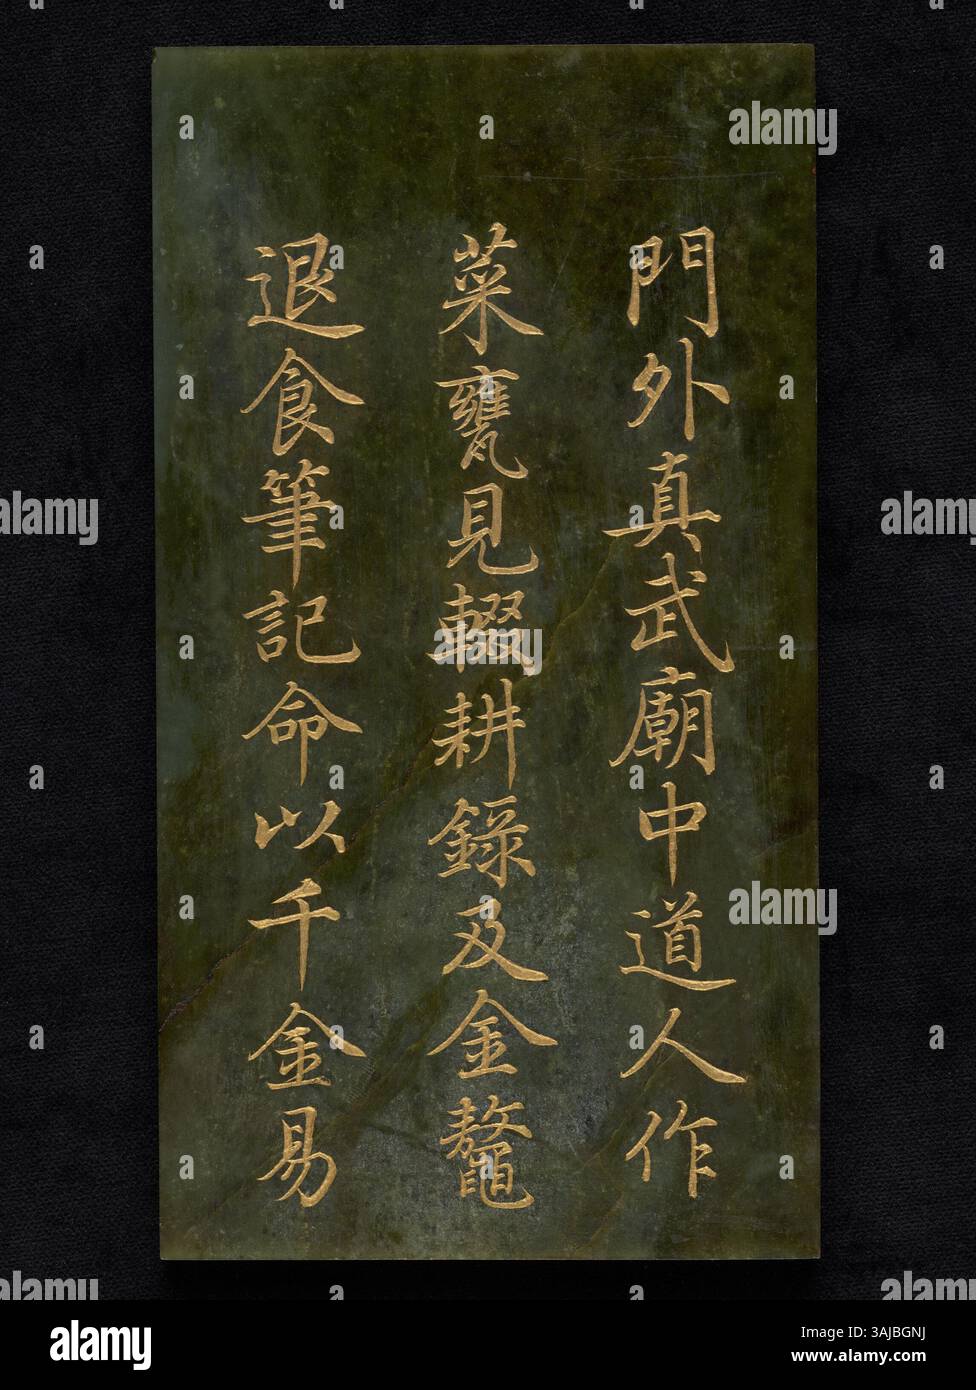 門外真武廟中道人作
菜甕見輟耕錄及金鼇
退食筆記命以千金易
alamy
Image ID: 3AJBGNJ
www.alamy.com